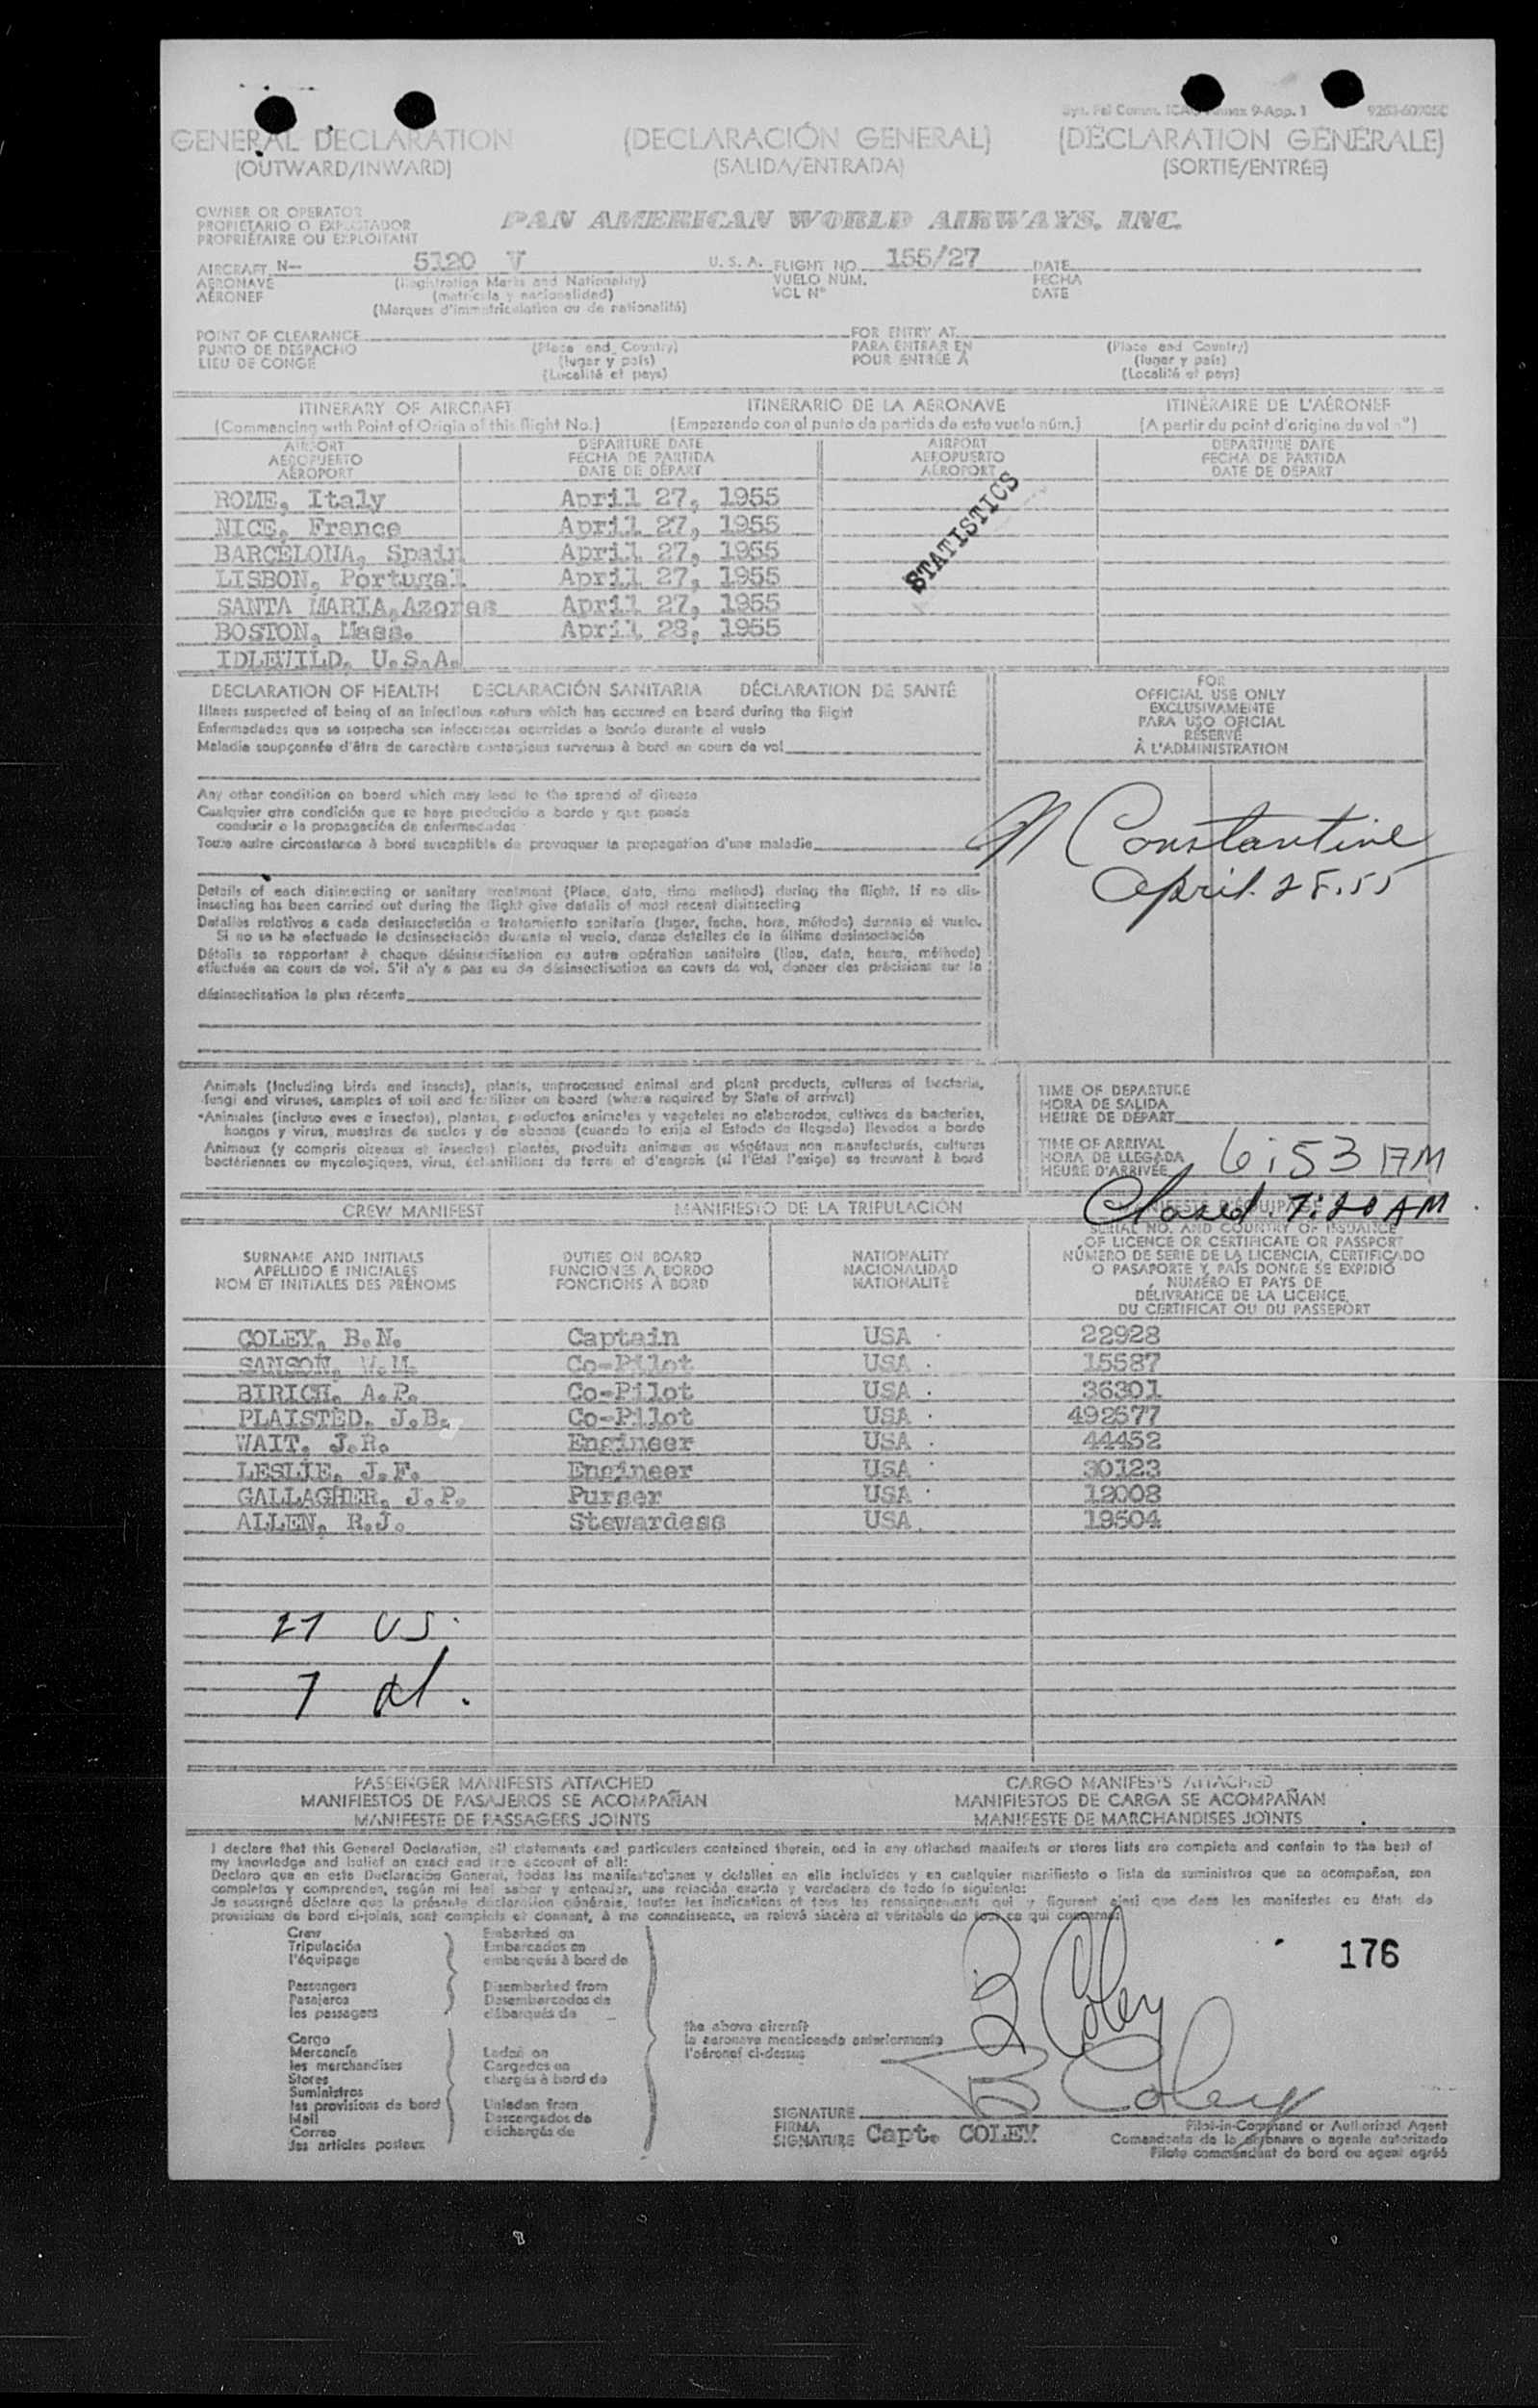 Sys. Fel Comm. ICAO Annex 9-App. 1
GENERAL DECLARATION (DECLARACIÓN GENERAL) (DÉCLARATION GÉNÉRALE)
(OUTWARD/INWARD) (SALIDA/ENTRADA) (SORTIE/ENTRÉE)
OWNER OR OPERATOR
PROPIETARIO O EXPLOTADOR
PROPRIÉTAIRE OU EXPLOITANT
PAN AMERICAN WORLD AIRWAYS, INC.
AIRCRAFT N— 5120 V U. S. A. FLIGHT NO. 155/27 DATE
AERONAVE (Registration Marks and Nationality) VUELO NUM. FECHA
AÉRONEF (matrícula y nacionalidad) VOL Nº DATE
(Marques d'immatriculation ou de nationalité)
POINT OF CLEARANCE FOR ENTRY AT
PUNTO DE DESPACHO (Place and Country) PARA ENTRAR EN (Place and Country)
LIEU DE CONGÉ (lugar y país) POUR ENTRÉE À (lugar y país)
(Localité et pays) (Localité et pays)
ITINERARY OF AIRCRAFT ITINERARIO DE LA AERONAVE ITINÉRAIRE DE L'AÉRONEF
(Commencing with Point of Origin of this flight No.) (Empezando con el punto de partida de este vuelo núm.) (A partir du point d'origine du vol nº)
AIRPORT DEPARTURE DATE AIRPORT DEPARTURE DATE
AEROPUERTO FECHA DE PARTIDA AEROPUERTO FECHA DE PARTIDA
AÉROPORT DATE DE DÉPART AÉROPORT DATE DE DÉPART
ROME, Italy April 27, 1955
NICE, France April 27, 1955
BARCELONA, Spain April 27, 1955
LISBON, Portugal April 27, 1955
SANTA MARIA, Azores April 27, 1955
BOSTON, Mass. April 28, 1955
IDLEWILD, U.S.A.
STATISTICS
DECLARATION OF HEALTH DECLARACIÓN SANITARIA DÉCLARATION DE SANTÉ
Illness suspected of being of an infectious nature which has occured on board during the flight
Enfermedades que se sospecha son infecciosas ocurridas a bordo durante el vuelo
Maladie soupçonnée d'être de caractère contagieux survenue à bord en cours de vol
Any other condition on board which may lead to the spread of disease
Cualquier otra condición que se haya producido a bordo y que pueda
conducir a la propagación de enfermedades
Toute autre circonstance à bord susceptible de provoquer la propagation d'une maladie
Details of each disinsecting or sanitary treatment (Place, date, time method) during the flight. If no dis-
insecting has been carried out during the flight give details of most recent disinsecting
Detalles relativos a cada desinsectación o tratamiento sanitario (lugar, fecha, hora, método) durante el vuelo.
Si no se ha efectuado la desinsectación durante el vuelo, dense detalles de la última desinsectación
Détails se rapportant à chaque désinsectisation ou autre opération sanitaire (lieu, date, heure, méthode)
effectuée en cours de vol. S'il n'y a pas eu de désinsectisation en cours de vol, donner des précisions sur la
désinsectisation la plus récente
FOR
OFFICIAL USE ONLY
EXCLUSIVAMENTE
PARA USO OFICIAL
RÉSERVÉ
À L'ADMINISTRATION
N Constantine
April 28.55
Animals (including birds and insects), plants, unprocessed animal and plant products, cultures of bacteria,
fungi and viruses, samples of soil and fertilizer on board (where required by State of arrival)
Animales (incluso aves e insectos), plantas, productos animales y vegetales no elaborados, cultivos de bacterias,
hongos y virus, muestras de suelos y de abonos (cuando lo exija el Estado de llegada) llevados a bordo
Animaux (y compris oiseaux et insectes) plantes, produits animaux ou végétaux non manufacturés, cultures
bactériennes ou mycologiques, virus, échantillons de terre et d'engrais (si l'État l'exige) se trouvant à bord
TIME OF DEPARTURE
HORA DE SALIDA
HEURE DE DÉPART
TIME OF ARRIVAL
HORA DE LLEGADA
HEURE D'ARRIVÉE 6:53 AM
Closed 7:20 AM
CREW MANIFEST MANIFIESTO DE LA TRIPULACIÓN MANIFESTE D'ÉQUIPAGE
SURNAME AND INITIALS
APELLIDO E INICIALES
NOM ET INITIALES DES PRÉNOMS
DUTIES ON BOARD
FUNCIONES A BORDO
FONCTIONS À BORD
NATIONALITY
NACIONALIDAD
NATIONALITÉ
SERIAL NO. AND COUNTRY OF ISSUANCE
OF LICENCE OR CERTIFICATE OR PASSPORT
NÚMERO DE SERIE DE LA LICENCIA, CERTIFICADO
O PASAPORTE Y PAÍS DONDE SE EXPIDIÓ
NUMÉRO ET PAYS DE
DÉLIVRANCE DE LA LICENCE,
DU CERTIFICAT OU DU PASSEPORT
COLEY, B.N. Captain USA 22928
SANSON, W.M. Co-Pilot USA 15587
BIRICH, A.P. Co-Pilot USA 36301
PLAISTED, J.B. Co-Pilot USA 492577
WAIT, J.R. Engineer USA 44452
LESLIE, J.F. Engineer USA 30123
GALLAGHER, J.P. Purser USA 12008
ALLEN, R.J. Stewardess USA 19504
27 US.
7 al.
PASSENGER MANIFESTS ATTACHED CARGO MANIFESTS ATTACHED
MANIFIESTOS DE PASAJEROS SE ACOMPAÑAN MANIFIESTOS DE CARGA SE ACOMPAÑAN
MANIFESTE DE PASSAGERS JOINTS MANIFESTE DE MARCHANDISES JOINTS
I declare that this General Declaration, all statements and particulars contained therein, and in any attached manifests or stores lists are complete and contain to the best of
my knowledge and belief an exact and true account of all:
Declaro que en esta Declaración General, todas las manifestaciones y detalles en ella incluídos y en cualquier manifiesto o lista de suministros que se acompañan, son
completos y comprenden, según mi leal saber y entender, una relación exacta y verdadera de todo lo siguiente:
Je soussigné déclare que la présente déclaration générale, toutes les indications et tous les renseignements qui y figurent ainsi que dans les manifestes ou états de
provisions de bord ci-joints, sont complets et donnent, à ma connaissance, un relevé sincère et véritable de tout ce qui concerne:
Crew Embarked on
Tripulación Embarcados en
l'équipage embarqués à bord de
Passengers Disembarked from
Pasajeros Desembarcados de
les passagers débarqués de
Cargo
Mercancía Laden on
les marchandises Cargados en
Stores chargés à bord de
Suministros
les provisions de bord Unladen from
Mail Descargados de
Correo déchargés de
les articles postaux
the above aircraft
la aeronave mencionada anteriormente
l'aéronef ci-dessus
176
B Coley
B Coley
SIGNATURE
FIRMA
SIGNATURE Capt. COLEY
Pilot-in-Command or Authorized Agent
Comandante de la aeronave o agente autorizado
Pilote commandant de bord ou agent agréé